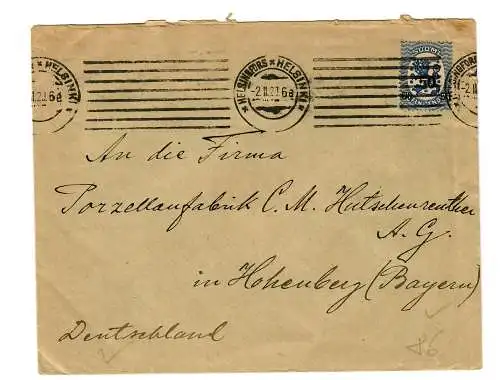 HELSINGFORS * HELSINKI
-2.II.21 6e
SUOMI
An die Firma
Porzellanfabrik C. M. Hutschenreuther
A. G.
in Hohenberg (Bayern)
Deutschland
86